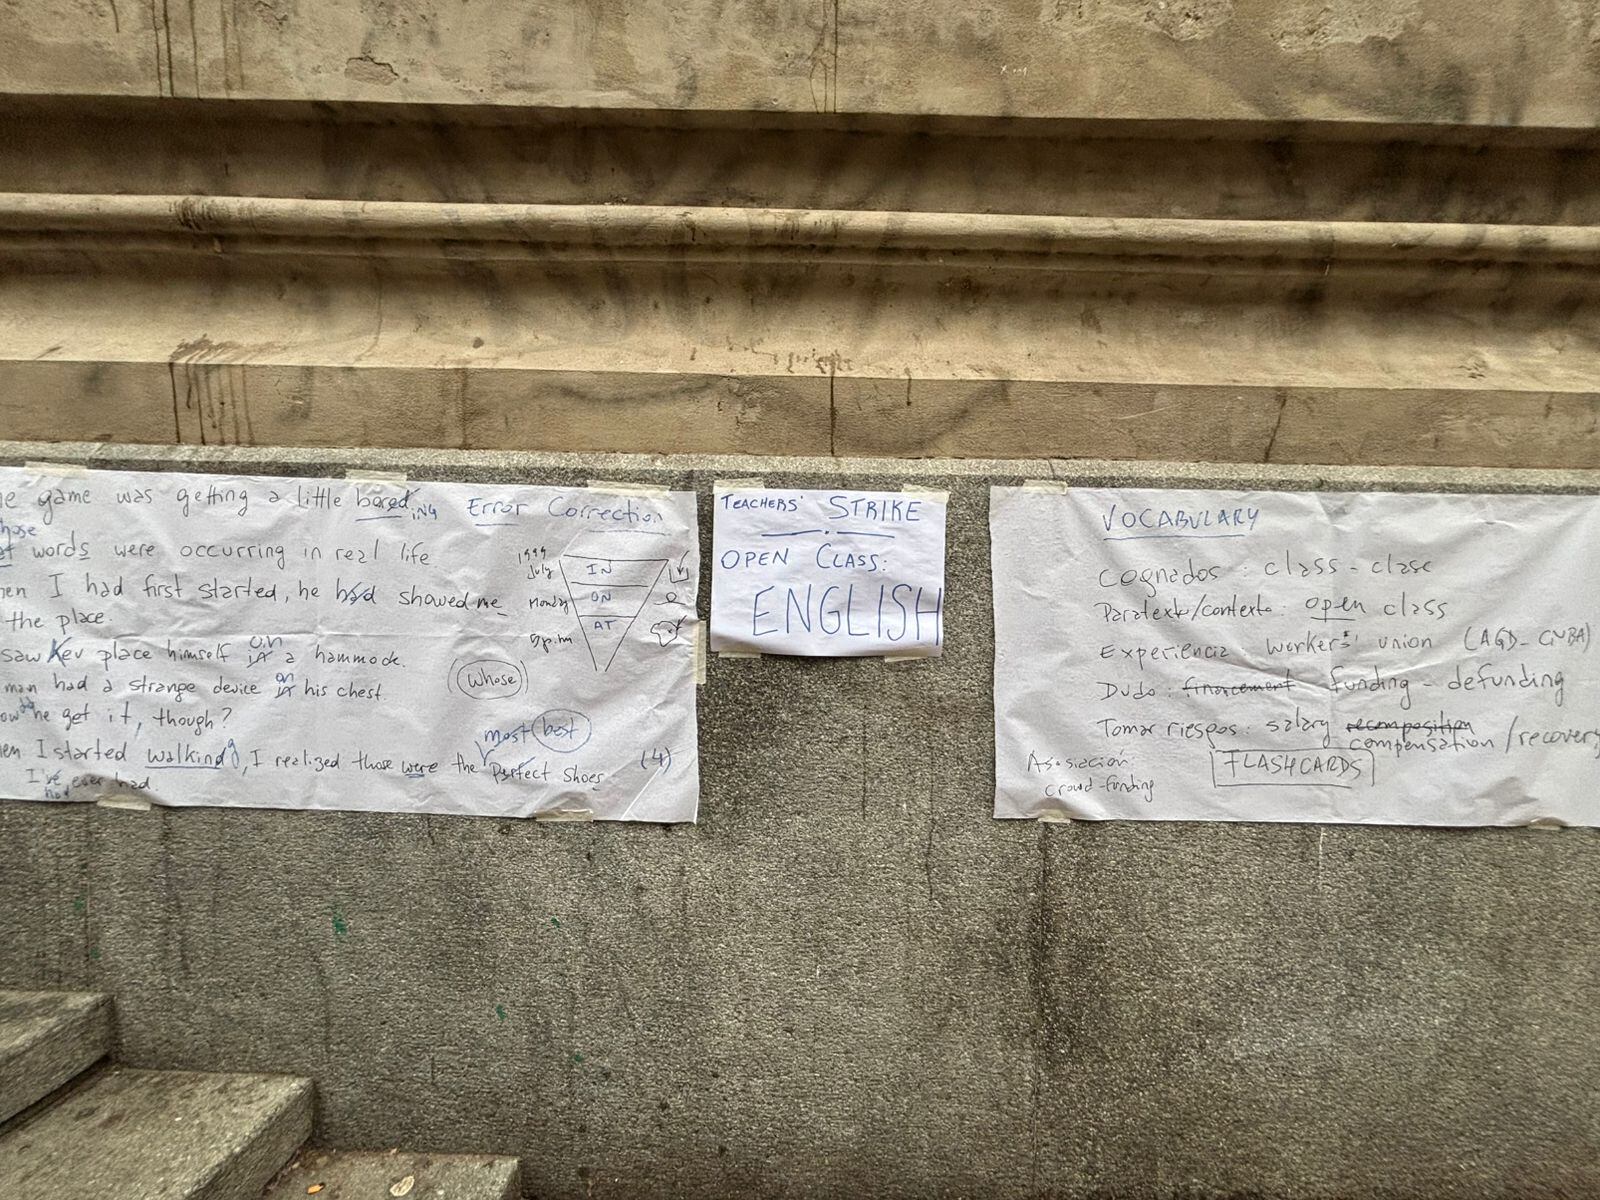 game was getting a little bored ing
Error Correction
hose
words were occurring in real life.
I had first started, he had showed me
the place.
saw Kev place himself in on a hammock.
man had a strange device in on his chest.
he get it, though?
I started walking, I realized those were the most best perfect shoes
I've ever had.
had
(4)
whose
1999
July
IN
Monday
ON
AT
TEACHERS' STRIKE
OPEN CLASS:
ENGLISH
VOCABULARY
Cognados: class - clase
Paratexto/contexto: open class
Experiencia: workers' union (AGD-CNBA)
Duda: financement funding - defunding
Tomar riesgos: salary recomposition
compensation / recovery
Asociación:
crowd-funding
FLASHCARDS